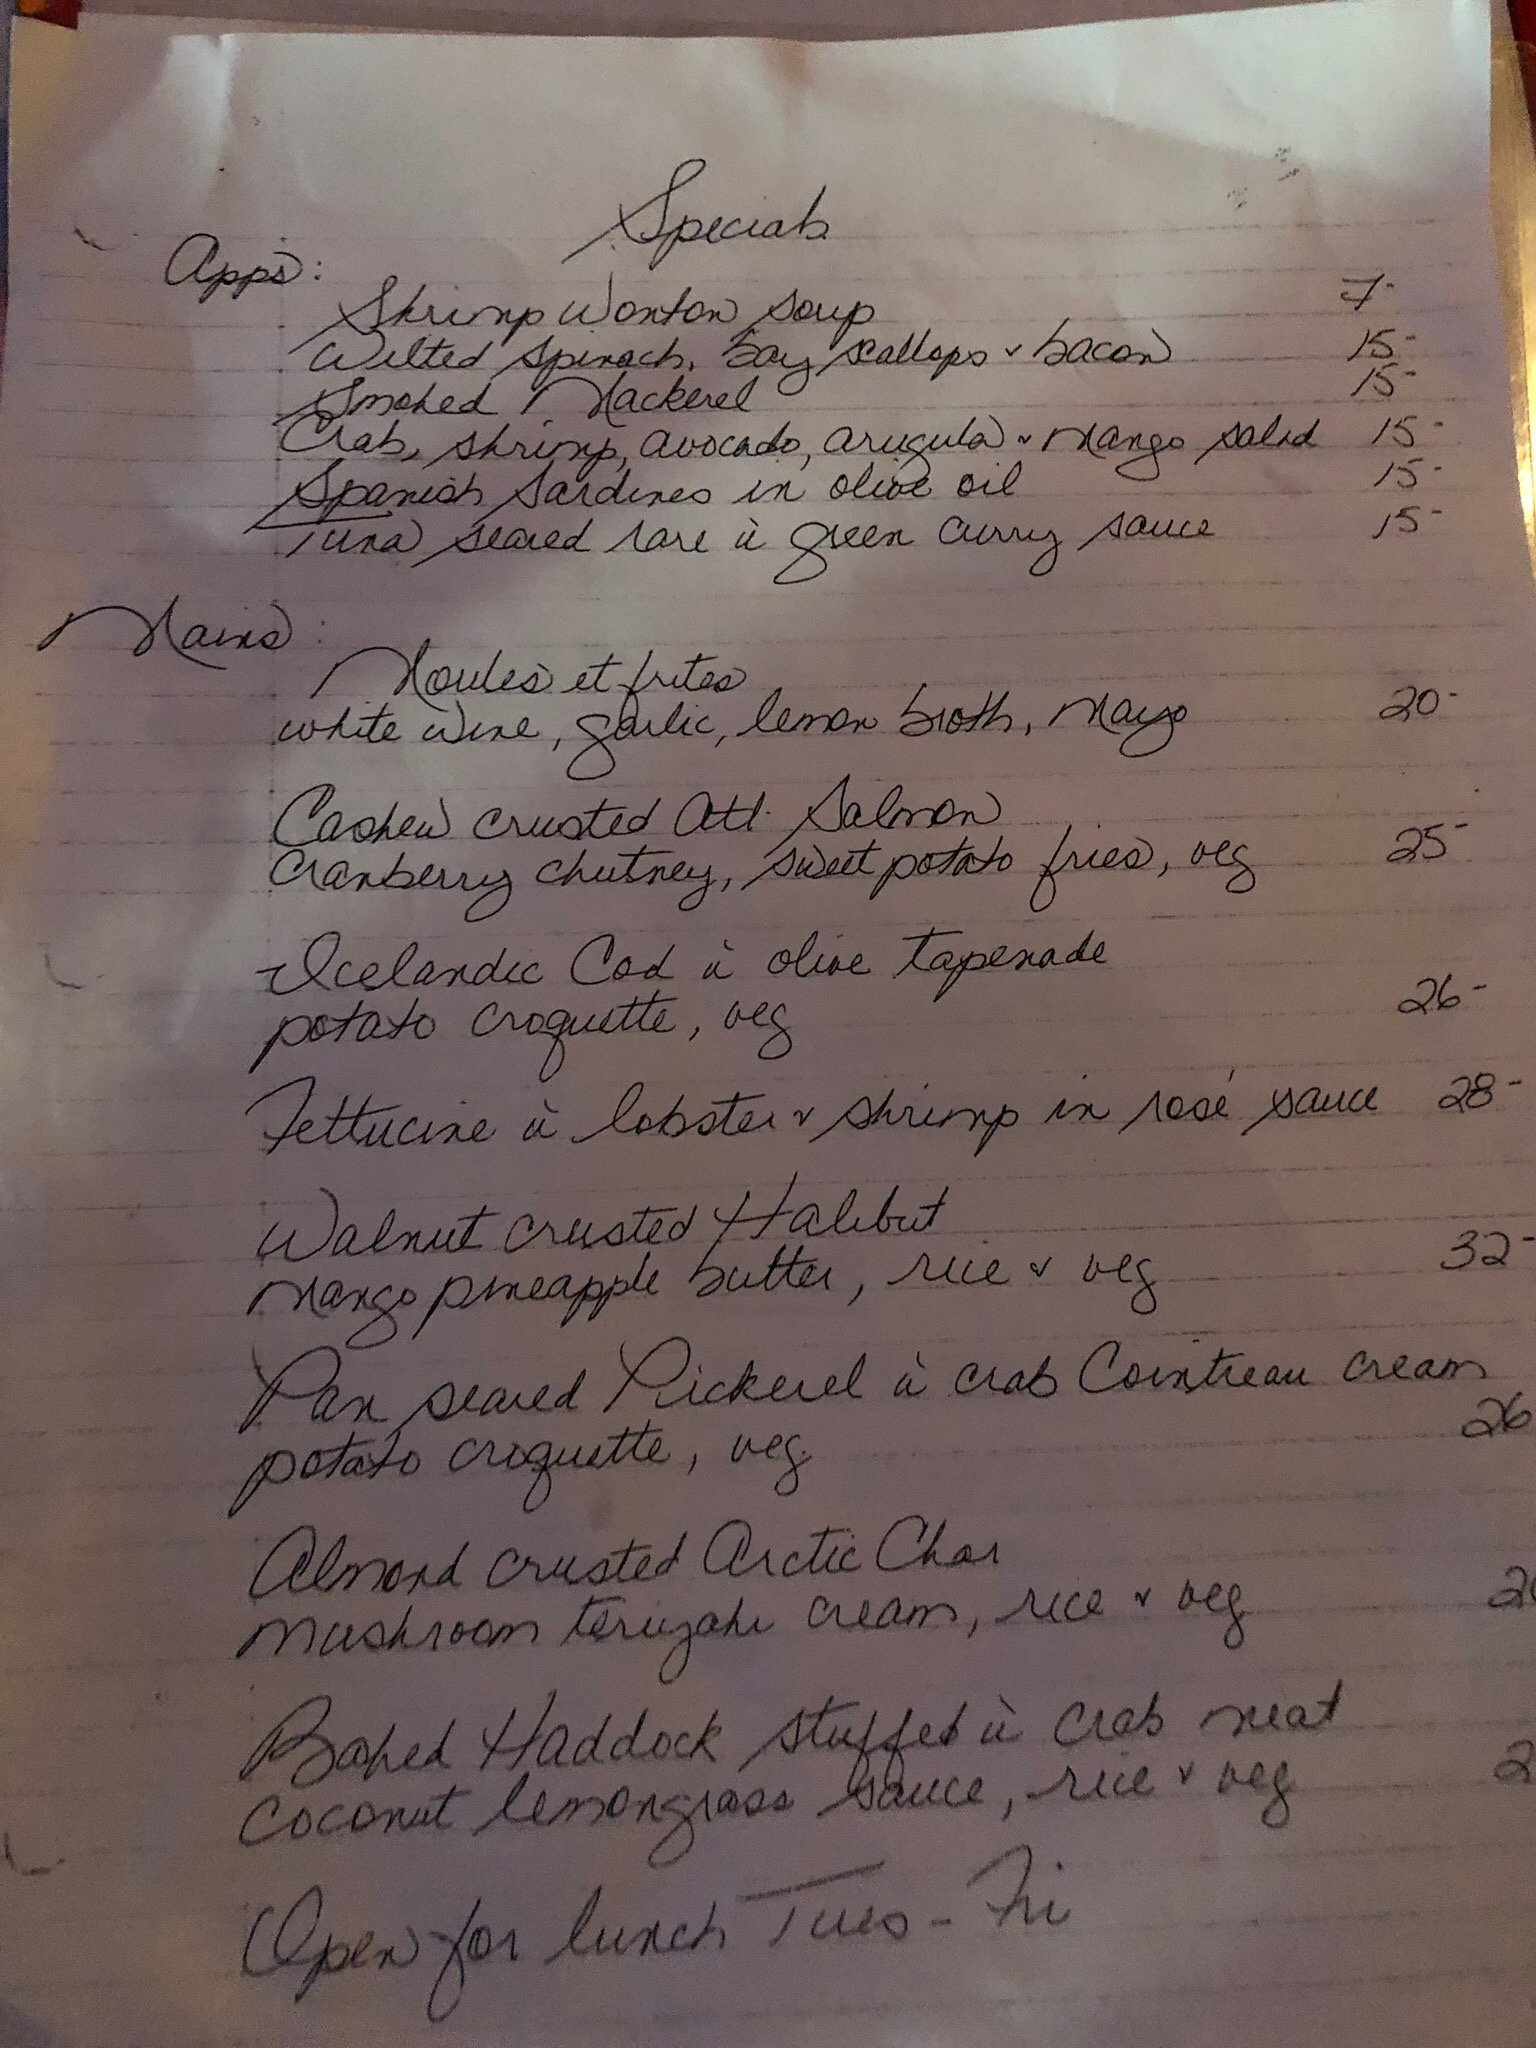 Specials
Apps:
Shrimp Wonton Soup 7-
Wilted Spinach, bay scallops & bacon 15-
Smoked Mackerel 15-
Crab, shrimp, avocado, arugula & Mango salad 15-
Spanish Sardines in olive oil 15-
Tuna seared rare ü green curry sauce 15-
Mains:
Moules et frites
white wine, garlic, lemon broth, Mayo 20-
Cashew crusted Atl. Salmon
Cranberry chutney, sweet potato fries, veg 25-
Icelandic Cod ü olive tapenade
potato croquette, veg 26-
Fettucine ü lobster & shrimp in rosé sauce 28-
Walnut crusted Halibut
Mango pineapple butter, rice & veg 32-
Pan seared Pickerel ü crab Cointreau cream
potato croquette, veg. 26
Almond crusted Arctic Char
Mushroom teriyaki cream, rice & veg
Baked Haddock stuffed ü crab meat
Coconut lemongrass sauce, rice & veg
Open for lunch Tues - Fri